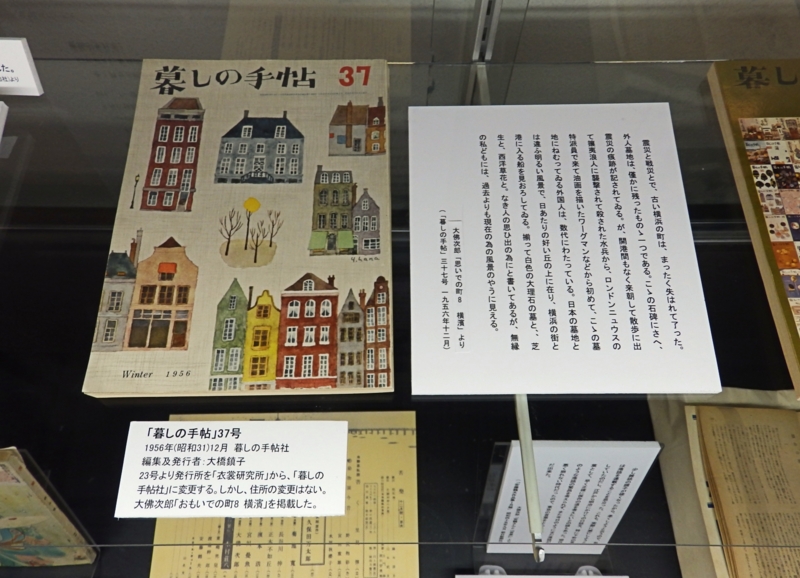 た。
暮しの手帖 37
Winter 1956
暮し
震災と戦災とで、古い横浜の町は、まったく失はれて了った。
外人墓地は、僅かに残ったものゝ一つである。こゝの石碑にさへ、
震災の痕跡が記されてゐる。が、開港間もなく来朝して散歩に出
て攘夷浪人に襲撃されて殺された水兵から、ロンドンニュウスの
特派員で来て油画を描いたワーグマンなどから初めて、こゝの墓
地にねむってゐる外国人は、数代にわたっている。日本の墓地と
は違ふ明るい風景で、日あたりの好い丘の上に在り、横浜の街と
港に入る船を見おろしてゐる。揃って白色の大理石の墓と、、芝
生と、西洋草花と。なき人の思ひ出の為にと書いてあるが、無縁
の私どもには、過去よりも現在の為の風景のやうに見える。
――大佛次郎「思いでの町8 横濱」より
(「暮しの手帖」三十七号 一九五六年十二月)
「暮しの手帖」37号
1956年(昭和31)12月 暮しの手帖社
編集及発行者:大橋鎮子
23号より発行所を「衣裳研究所」から、「暮しの
手帖社」に変更する。しかし、住所の変更はない。
大佛次郎「おもいでの町8 横濱」を掲載した。